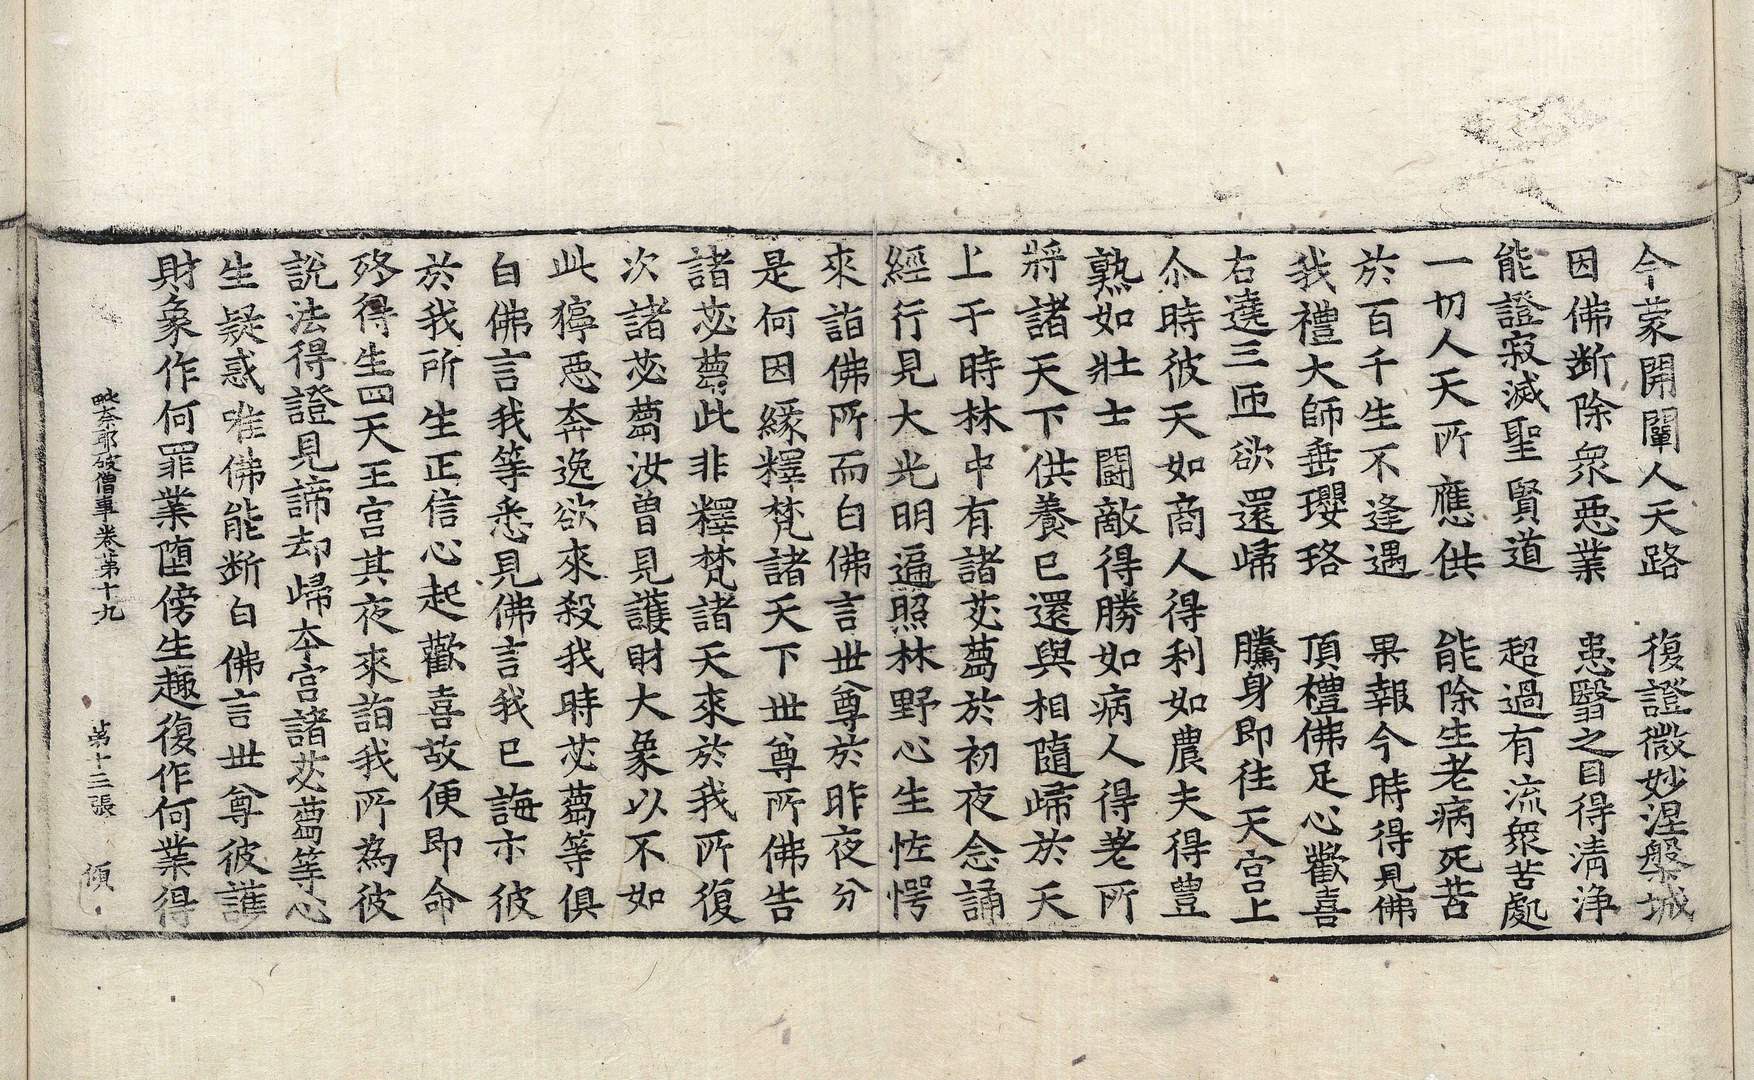 今蒙開闡人天路　復證微妙涅槃城
因佛断除衆惡業　患翳之目得清淨
能證寂滅聖賢道　超過有流衆苦處
一切人天所應供　能除生老病死苦
於百千生不逢遇　果報今時得見佛
我禮大師垂瓔珞　頂禮佛足心歡喜
右遶三匝欲還歸　騰身即往天宮上
尒時彼天如商人得利如農夫得豊
熟如壯士鬪敵得勝如病人得老所
將諸天下供養已還與相隨歸於天
上于時林中有諸苾蒭於初夜念誦
經行見大光明遍照林野心生恠愕
來詣佛所而白佛言世尊於昨夜分
是何因緣釋梵諸天下世尊所佛告
諸苾蒭此非釋梵諸天來於我所復
次諸苾蒭汝曽見護財大象以不如
此獰惡奔逸欲來殺我時苾蒭等俱
白佛言我等悉見佛言我已誨示彼
於我所生正信心起歡喜故便即命
殁得生四天王宮其夜來詣我所為彼
說法得證見諦却歸本宮諸苾蒭等心
生疑惑唯佛能断白佛言世尊彼護
財象作何罪業堕傍生趣復作何業得
毗奈耶破僧事卷第十九　第十三張　傾